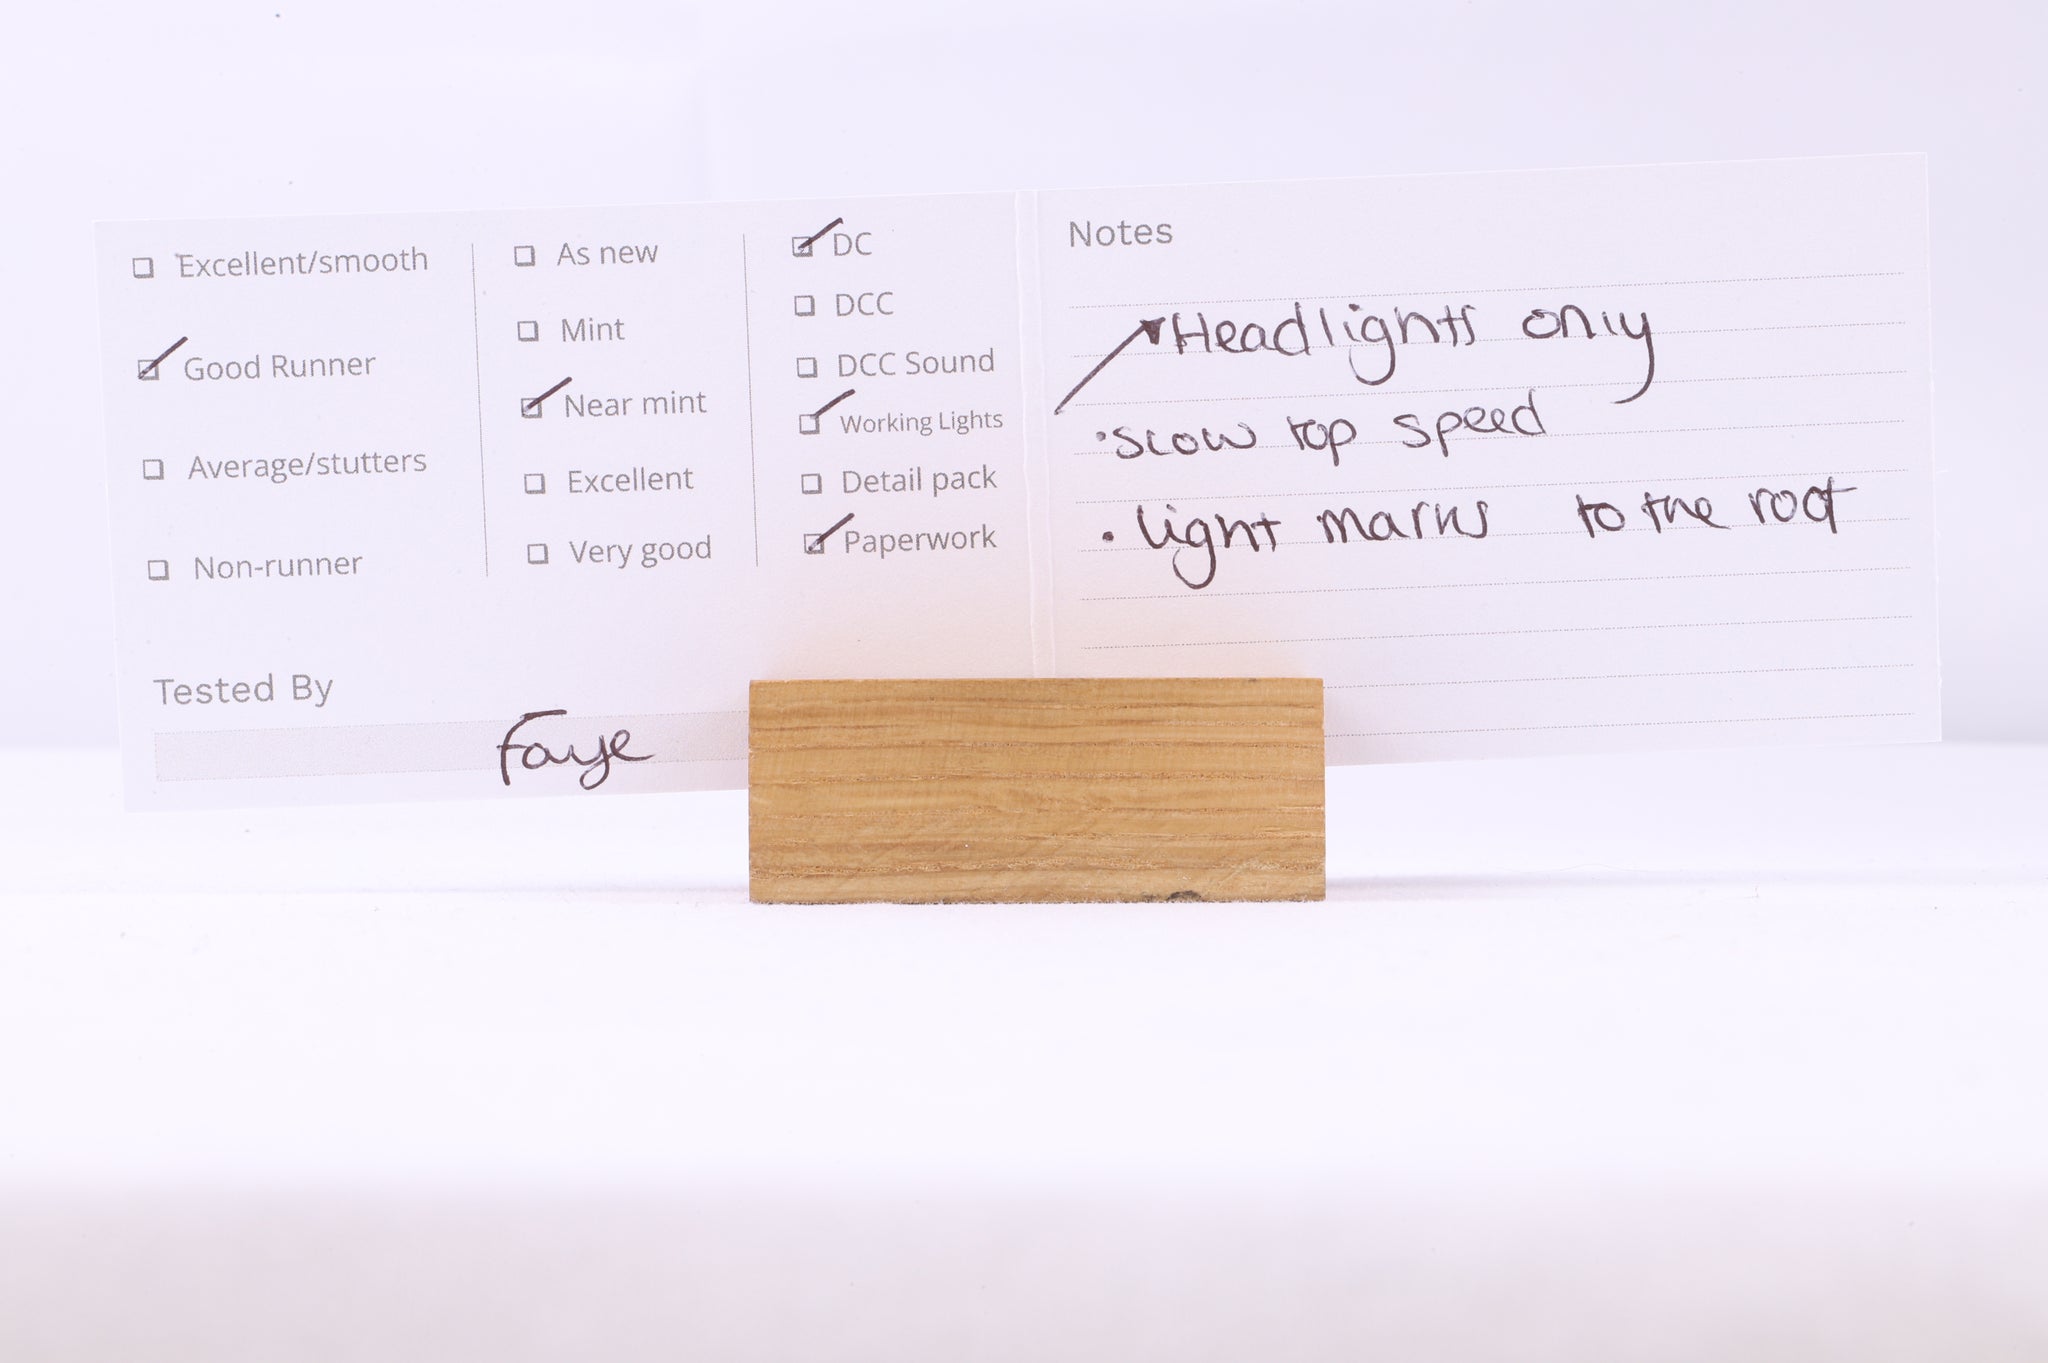 Excellent/smooth
Good Runner
Average/stutters
Non-runner
As new
Mint
Near mint
Excellent
Very good
DC
DCC
DCC Sound
Working Lights
Detail pack
Paperwork
Tested By
Faye
Notes
Headlights only
• slow top speed
• light marks to the roof